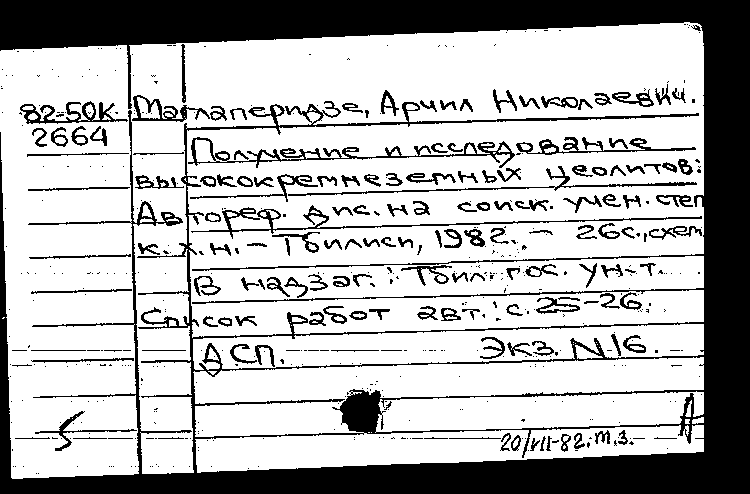 82-50К Маглаперидзе, Арчил Николаевич.
2664
Получение и исследование
высококремнеземных цеолитов:
Автореф. дис. на соиск. учен. степ
к. х. н. – Тбилиси, 1982. – 26с., схем
В надзаг.: Тбил. гос. ун-т.
Список работ авт.: с. 25-26.
ДСП. Экз. N 16.
5 А
20/VII-82. т.з.